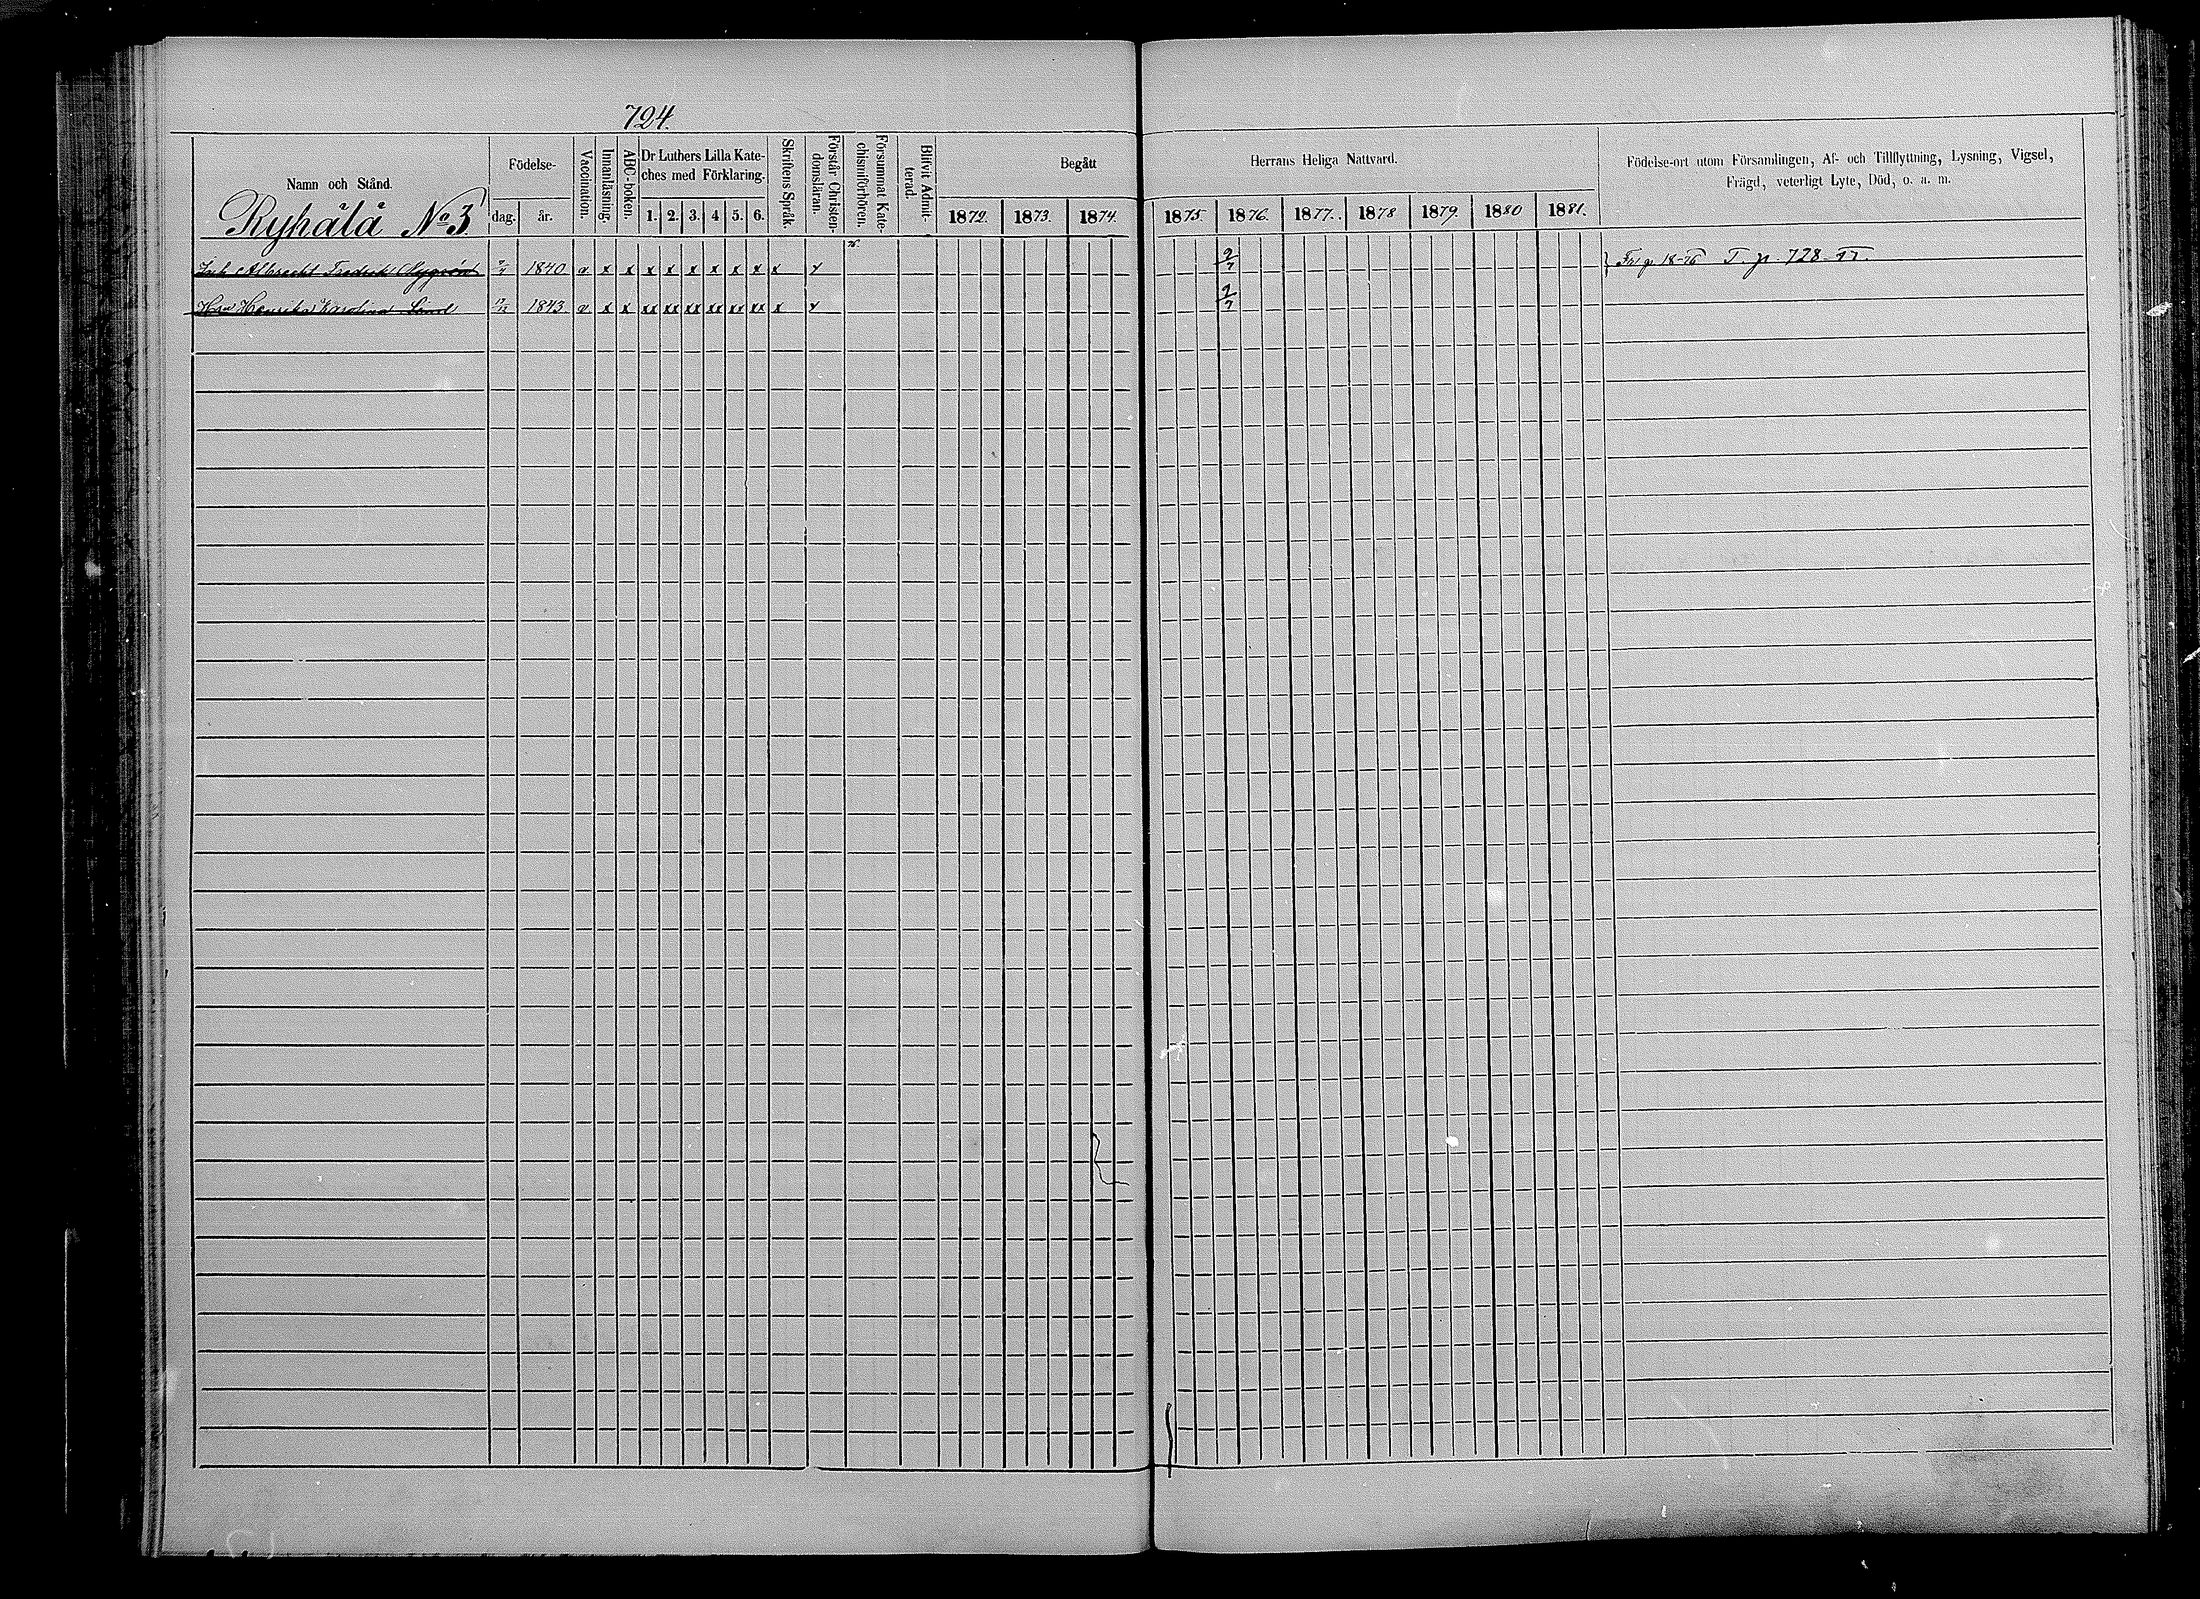 724.
Namn och Stånd.
Födelse-
dag. år.
Vaccination.
Innanläsning.
ABC-boken.
Dr Luthers Lilla Kate-
ches med Förklaring.
1. 2. 3. 4 5. 6.
Skriftens Språk.
Förstår Christen-
domsläran.
Försummat Kate-
chismiförhören.
Blifvit Admit-
terad.
Begått
1872. 1873. 1874.
Herrans Heliga Nattvard.
1875. 1876. 1877. 1878 1879. 1880 1881.
Födelse-ort utom Församlingen, Af- och Tillflyttning, Lysning, Vigsel,
Frägd, veterligt Lyte, Död, o. a. m.
Ryhälä No 3.
Albrecht Fredrik 1840 v x x x x x x x x x
2/7
18-76 T. p. 728-77.
Karolina 1843 v x x xx xx xx xx xx xx x
2/7